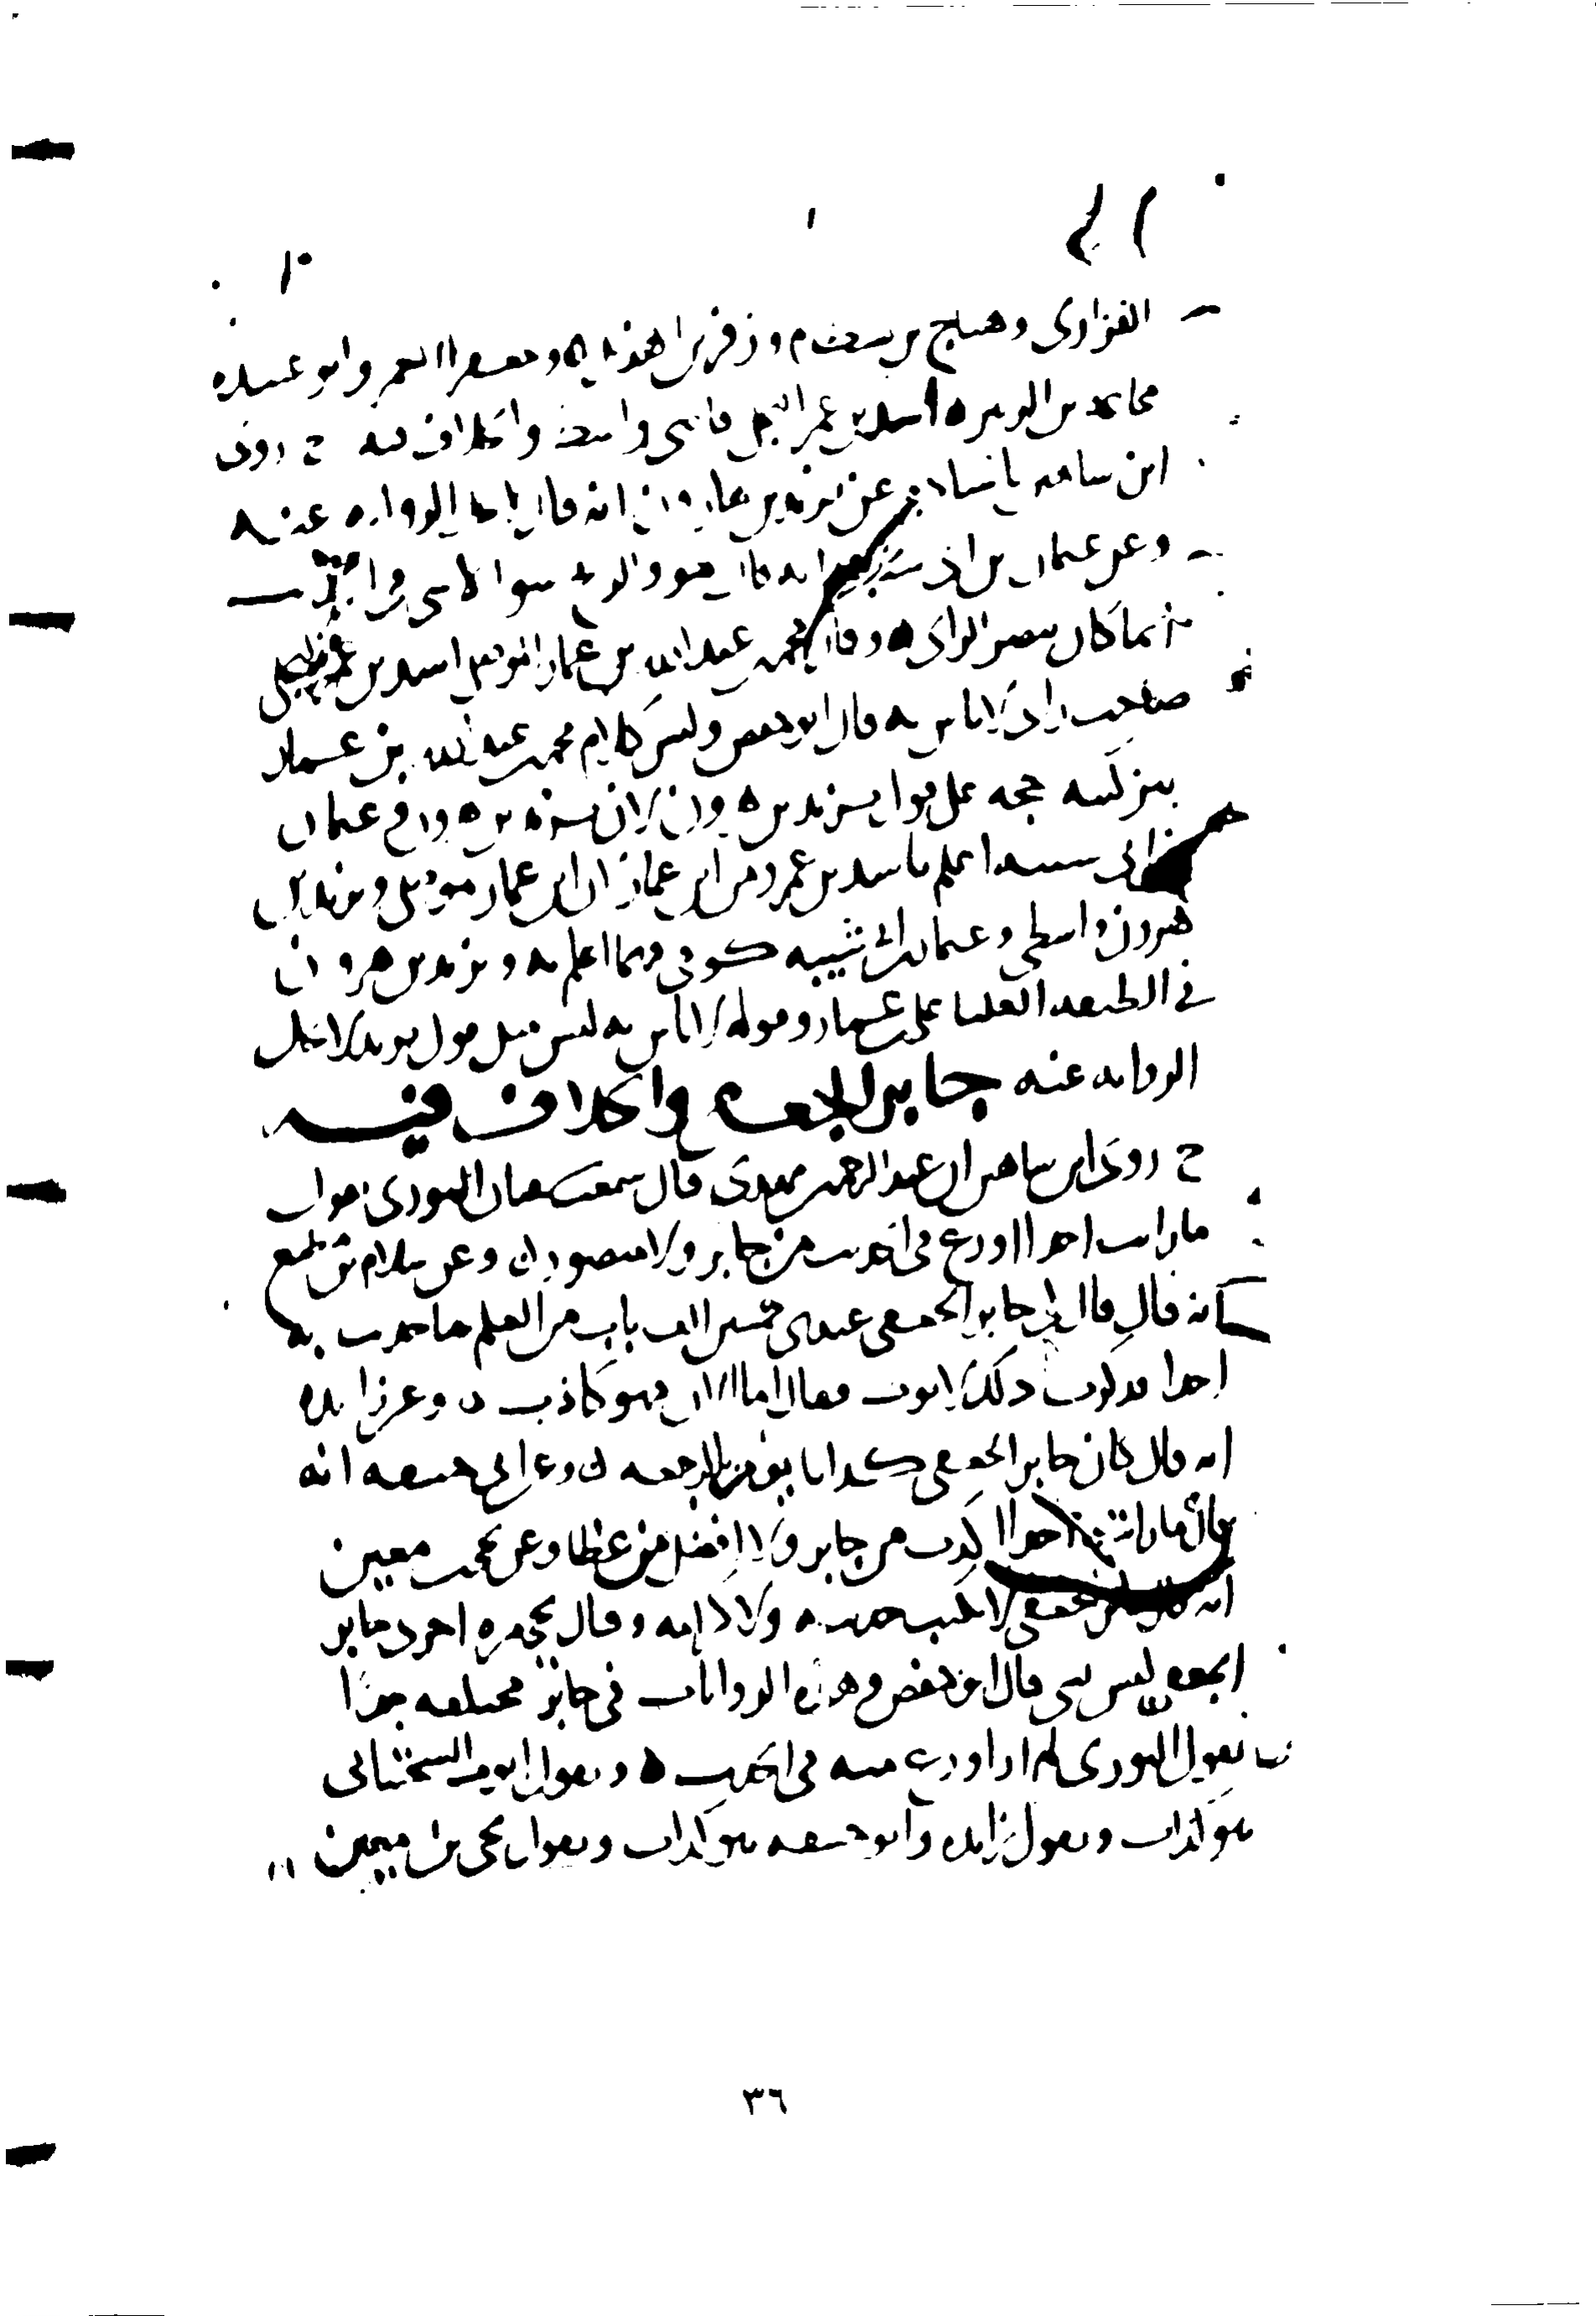 الفزاري وهياج بن بسطام وزفر بن الهذيل ٥ وابو عبيده
محاعه بن الزبير ٥ اسد بن عمر البجلي قاضي واسط والخلاف فيه ح روى
ابن شاهين باسناده عن يزيد بن هارون انه قال لا يحل الروايه عنه ٥
وعن عثمان بن ابي شيبه انه قال هو والريح سوا لا شي في الحديث
انما كان يبصر الراي ٥ وقال محمد بن عبد الله بن عمار الموصلي اسد بن عمر البجلي
صاحب راي لا باس به قال ابو حفص وليس كلام محمد بن عبد الله بن عمار
بتزكيته حجه على قول يزيد بن هارون لان يزيد بن هارون وعثمان
بن ابي شيبه اعلم باسد بن عمرو من ابن عمار لان ابن عمار موصلي ويزيد بن
هرون واسطي وعثمان بن ابي شيبه كوفي وهما اعلم به ويزيد بن هرون
في الطبقه العليا على بن عمار وقوله لا باس به ليس مثل قول يزيد لا تحل
الروايه عنه جابر الجعفي والخلاف فيه
ح روى ابن شاهين ان عبد الرحمن بن مهدي قال سمعت سفيان الثوري يقول
ما رايت احدا اورع في الحديث من جابر ولا منصور ٥ وعن سلام بن ابي مطيع
انه قال قال لي جابر الجعفي عندي خمسين الف باب من العلم ما حدثت به
احدا فذكرت ذلك لايوب فقال اما الان فهو كاذب ٥ وعن زايده
انه قال كان جابر الجعفي كذابا يؤمن بالرجعه ٥ وعن ابي حنيفه انه
قال ما رايت احدا اكذب من جابر ولا افضل من عطا وعن يحيى بن معين
انه قال الجعفي لا يكتب حديثه ولا كرامه وقال يحيى مره اخرى جابر
الجعفي ليس بشي قال ابو حفص وهذه الروايات في جابر مختلفه جدا
يقول الثوري لم ار اورع منه في الحديث ٥ ويقول ايوب السختياني
هو كذاب ويقول زايده وابو حنيفه هو كذاب ويقول يحيى بن معين
٣٦